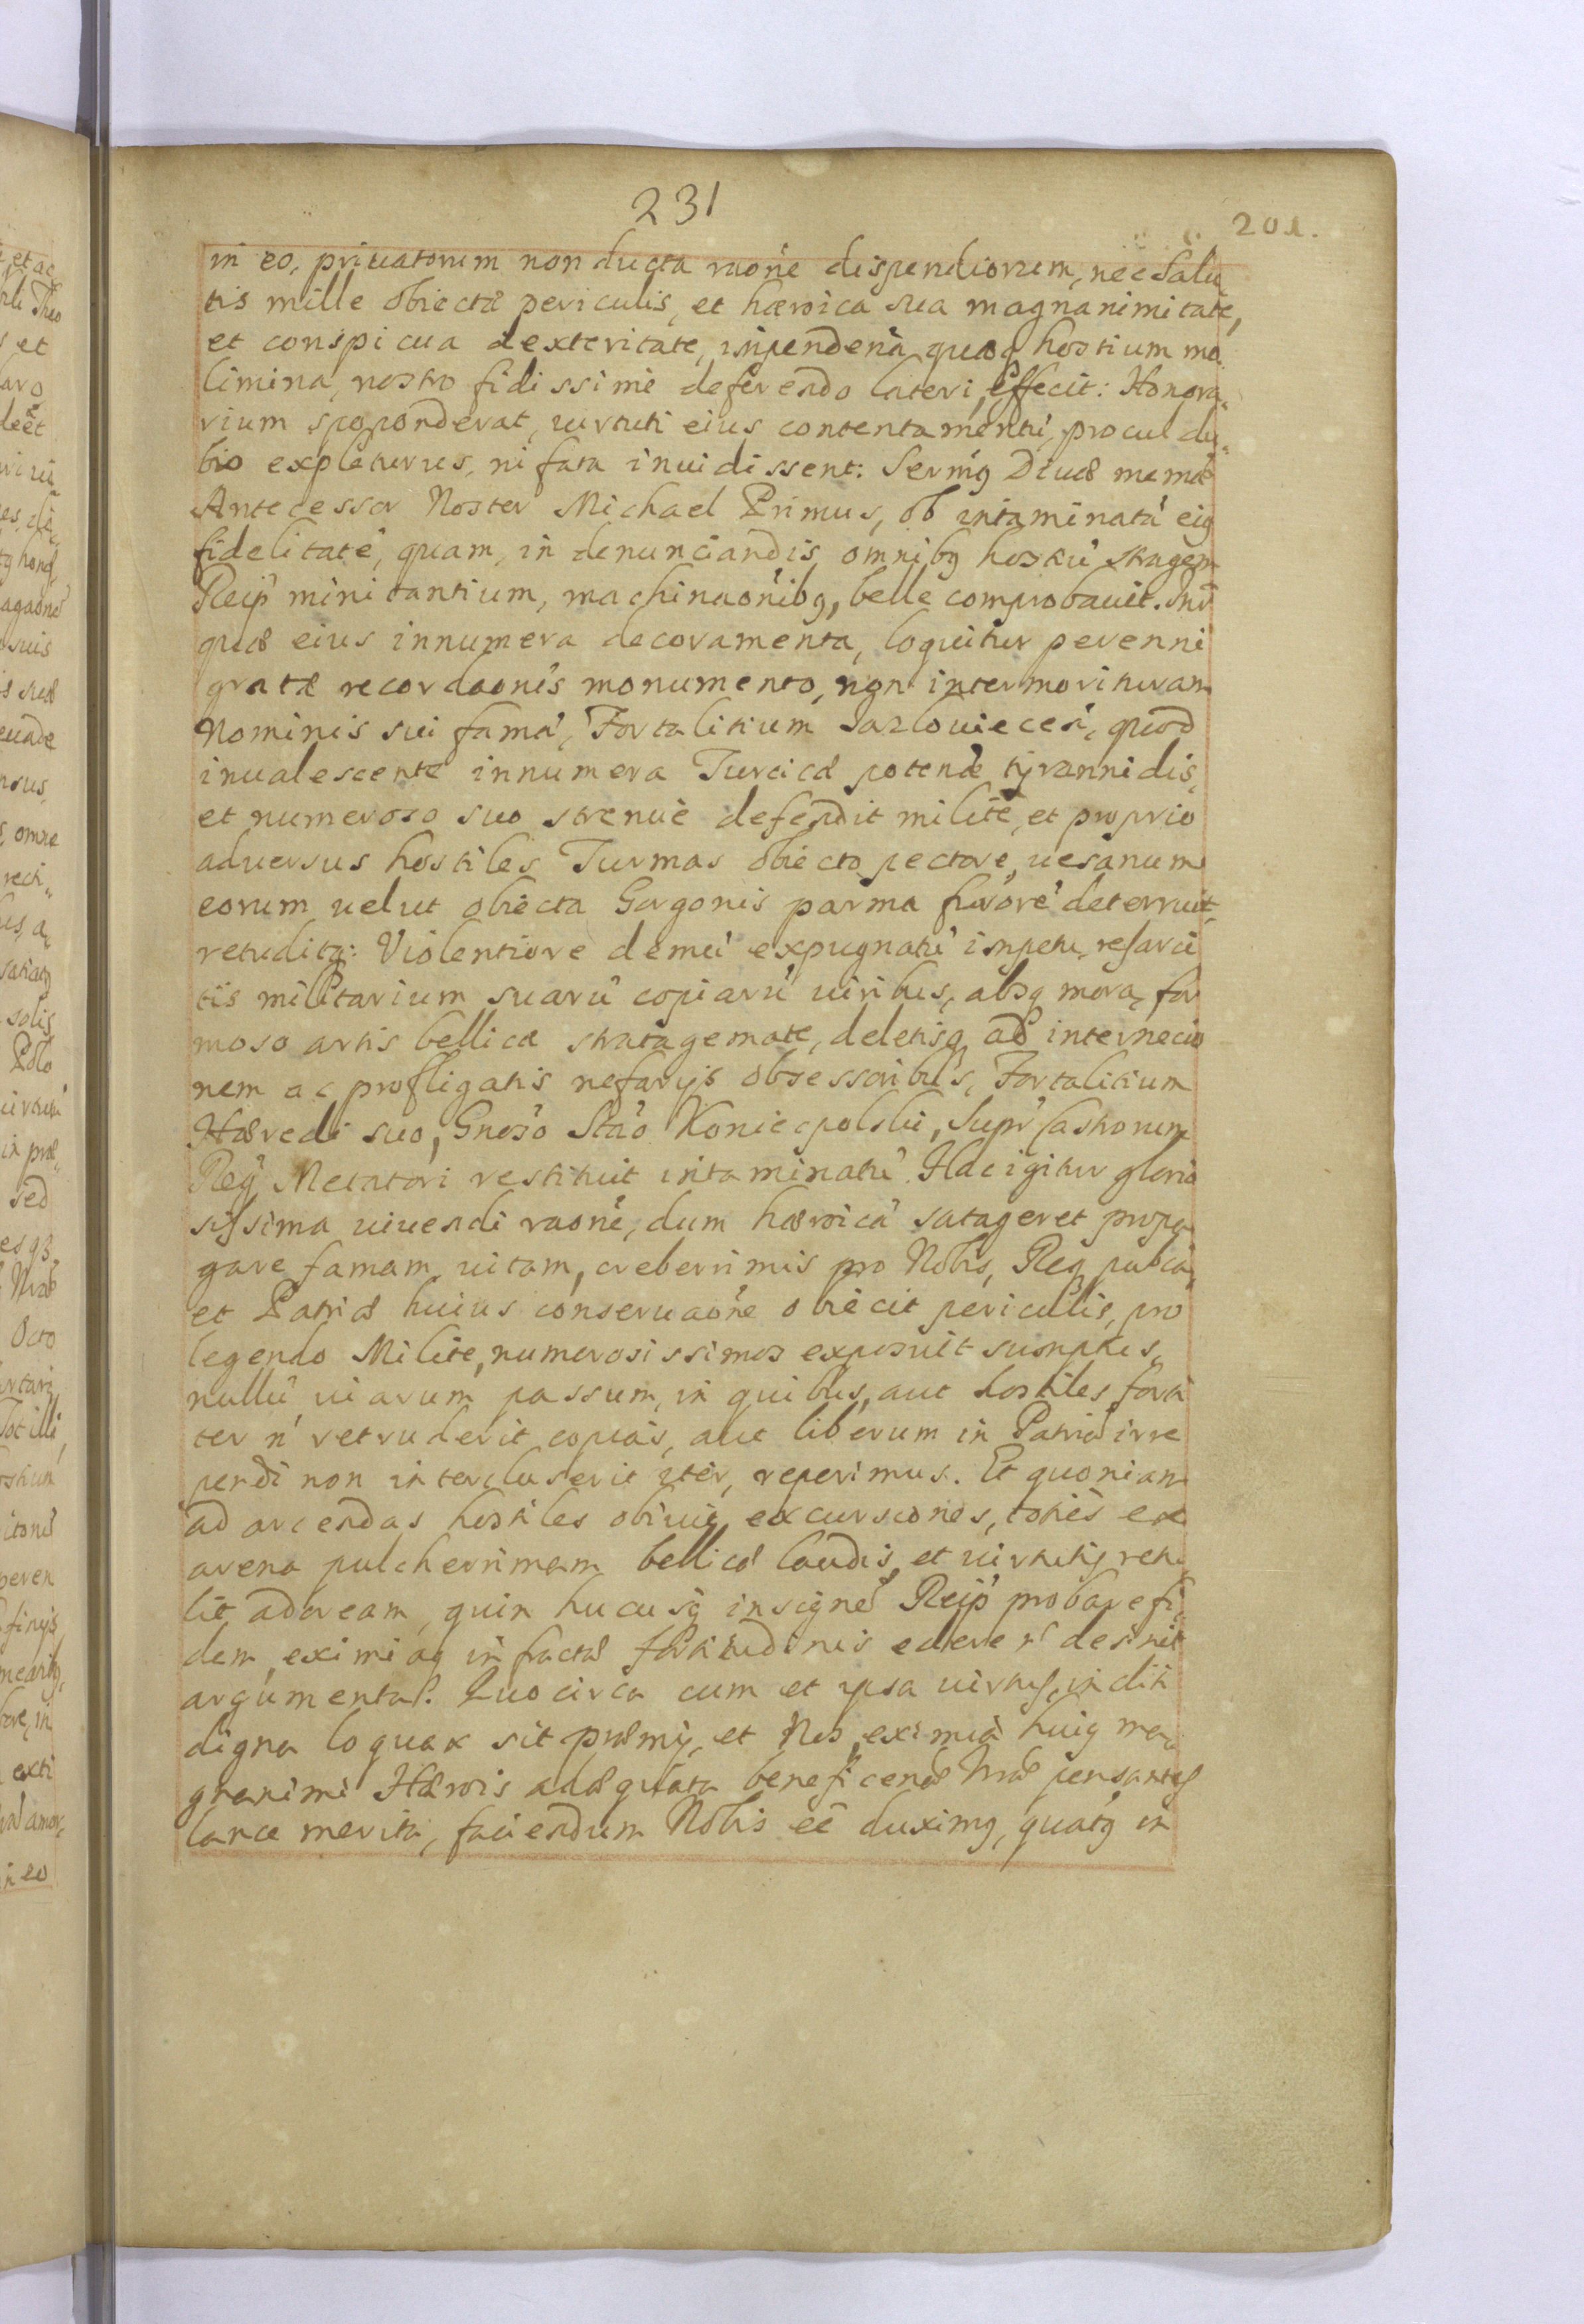 231
201.
in eo, privatorum non ducta raoñe dispendiorum, nec Salu
tis mille obiectæ periculis, et hæroica sua magnanimitate,
et conspicua dexteritate, impendeñ quæq hostium mo
limina, nostro fidissimè deferendo lateri, effecit: Honora„
rium spoponderat, virtuti eius contentamentū, procul du„
bio expleturus, ni fata inuidissent: Sermg Diuæ memæ
Antecessor Noster Michael Primus, ob intaminatā eig
fidelitatē, quam, in denunciandis omnibg hostiū stragem
Reip minitantium, machinaoñibg, belle comprobauit. Int
quæ eius innumera decoramenta, loquitur perenni
gratæ recordaonis monumento, non intermorituram
Nominis sui famā, Fortalitium Jazlouieceñ, quod
inualescente innumera Turcicæ poteñæ tyrannidis,
et numeroso suo strenuè defendit milite, et proprio
aduersus hostiles Turmas obiecto pectore, uesanum
eorum uelut obiecta Gorgonis parma furorē deterruit,
retuditq: Violentiore demū expugnatū impetu, resarci
tis militarium suarū copiarū uiribus, absq mora, for
moso artis bellicæ stratagemate, deletisq ad internecio
nem ac profligatis nefarijs obsessoribus, Fortalitium
Hæredi suo, Gnoso Stāo Koniecpolski, Supr Castrorum
Reg Metatori restituit intaminatū. Hac igitur glorio
sissima uiuendi raoñe, dum hæroicā satageret propa
gare famam, uitam, creberrimis pro Nobis, Req pubca,
et Patriæ huius conseruaoñe obiecit periculis, pro
legendo Milite, numerosissimos exposuit sumptus,
nullū uiarum passum, in quibus, aut hostiles forti
ter ñ retruderit copias, aut liberum in Patriā irre
pendi non intercluserit iter, reperimus. Et quoniam
ad arcendas hostiles obiuig excursiones, toties ex
arena pulcherrimam bellicæ laudis, et uirtutis retu
lit adoream, quin hucusq insignē Reip probare fi„
dem, eximiaq infractæ fortitudinis edere ñ desinit
argumenta. Quocirca cum et ipsa uirtus, inditi
digna loquax sit præmij, et Nos, eximia huig ma„
gnanimi Hærois adæquata beneficeñæ Nræ pensantes
lance merita, faciendum Nobis eē duximg, quatg in